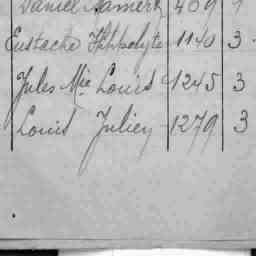 Daniel Lamerk 409 1
Eustache Hippolyte 1140 3
Jules Mie Louis 1245 3
Louis Julien 1279 3